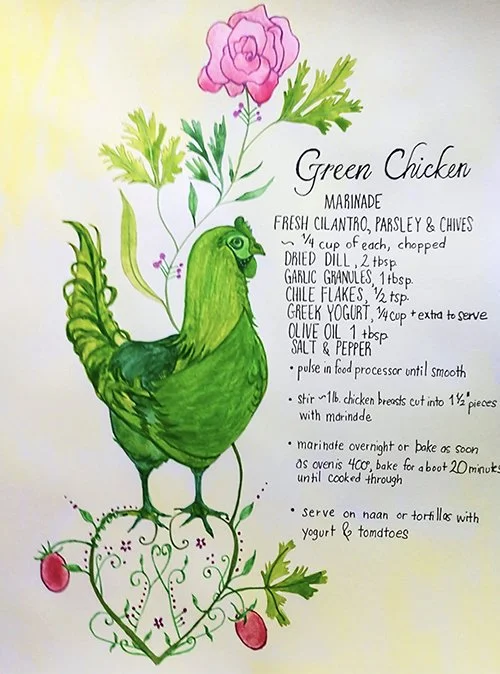 Green Chicken
MARINADE
FRESH CILANTRO, PARSLEY & CHIVES
~ 1/4 cup of each, chopped
DRIED DILL, 2 tbsp.
GARLIC GRANULES, 1 tbsp.
CHILE FLAKES, 1/2 tsp.
GREEK YOGURT, 1/4 cup + extra to serve
OLIVE OIL 1 tbsp
SALT & PEPPER
• pulse in food processor until smooth
• stir ~1lb. chicken breasts cut into 1 1/2" pieces
with marinade
• marinate overnight or bake as soon
as oven is 400°, bake for about 20 minutes
until cooked through
• serve on naan or tortillas with
yogurt & tomatoes